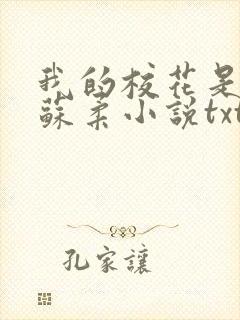 我的校花是
蘇柔小説txt
孔家讓